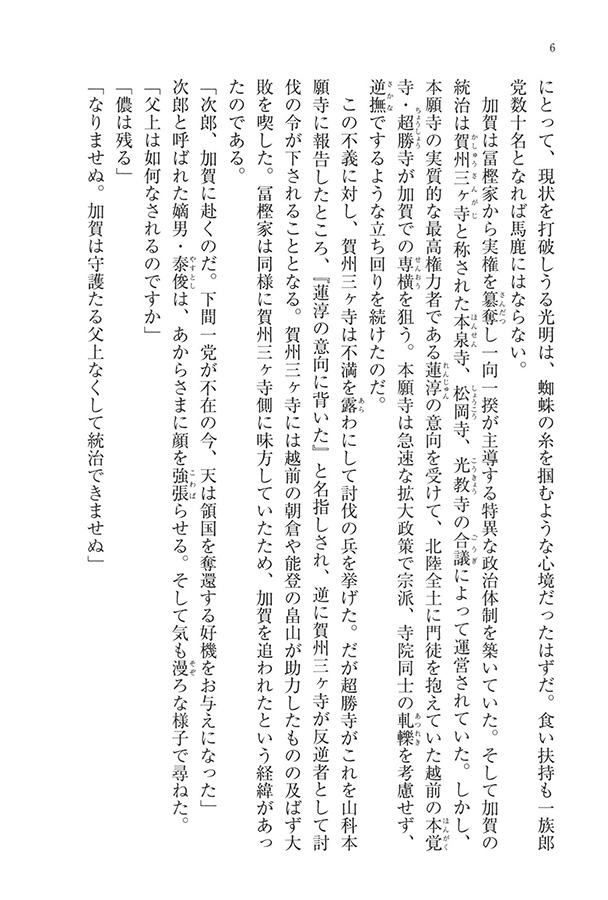 6
にとって、現状を打破しうる光明は、蜘蛛の糸を掴むような心境だったはずだ。食い扶持も一族郎
党数十名となれば馬鹿にはならない。
　加賀は冨樫家から実権を簒奪し一向一揆が主導する特異な政治体制を築いていた。そして加賀の
統治は賀州三ヶ寺と称された本泉寺、松岡寺、光教寺の合議によって運営されていた。しかし、
本願寺の実質的な最高権力者である蓮淳の意向を受けて、北陸全土に門徒を抱えていた越前の本覚
寺・超勝寺が加賀での専横を狙う。本願寺は急速な拡大政策で宗派、寺院同士の軋轢を考慮せず、
逆撫でするような立ち回りを続けたのだ。
　この不義に対し、賀州三ヶ寺は不満を露わにして討伐の兵を挙げた。だが超勝寺がこれを山科本
願寺に報告したところ、『蓮淳の意向に背いた』と名指しされ、逆に賀州三ヶ寺が反逆者として討
伐の令が下されることとなる。賀州三ヶ寺には越前の朝倉や能登の畠山が助力したものの及ばず大
敗を喫した。冨樫家は同様に賀州三ヶ寺側に味方していたため、加賀を追われたという経緯があっ
たのである。
「次郎、加賀に赴くのだ。下間一党が不在の今、天は領国を奪還する好機をお与えになった」
次郎と呼ばれた嫡男・泰俊は、あからさまに顔を強張らせる。そして気も漫ろな様子で尋ねた。
「父上は如何なされるのですか」
「儂は残る」
「なりませぬ。加賀は守護たる父上なくして統治できませぬ」